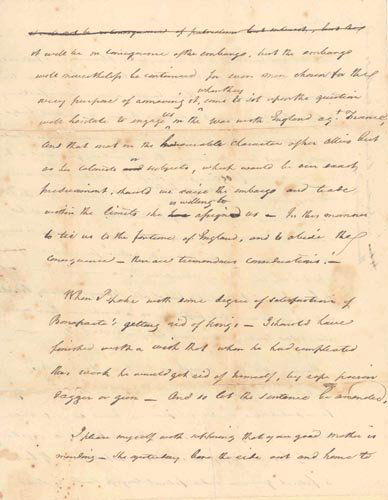 it will be in consequence of the embargo, but the embargo
will nevertheless be continued for even men chosen for the
very purpose of removing it, when they come to act upon the question
will hesitate to engage us in the war with England agt. France,
and that not in the honorable character of her allies but
as her colonists or subjects, which would be our exact
predicament, should we raise the embargo and trade
within the limits she is willing to assign us — In this manner
to tie us to the fortune of England, and to abide the
consequence — these are tremendous considerations! —
When I spoke with some degree of satisfaction of
Bonaparte's getting rid of kings — I should have
finished with a wish that when he had completed
this work he would get rid of himself, by rope poison
dagger or gun — And so let the sentence be amended.
I please myself with believing that your good mother is
mending — She yesterday bore the ride out and home to